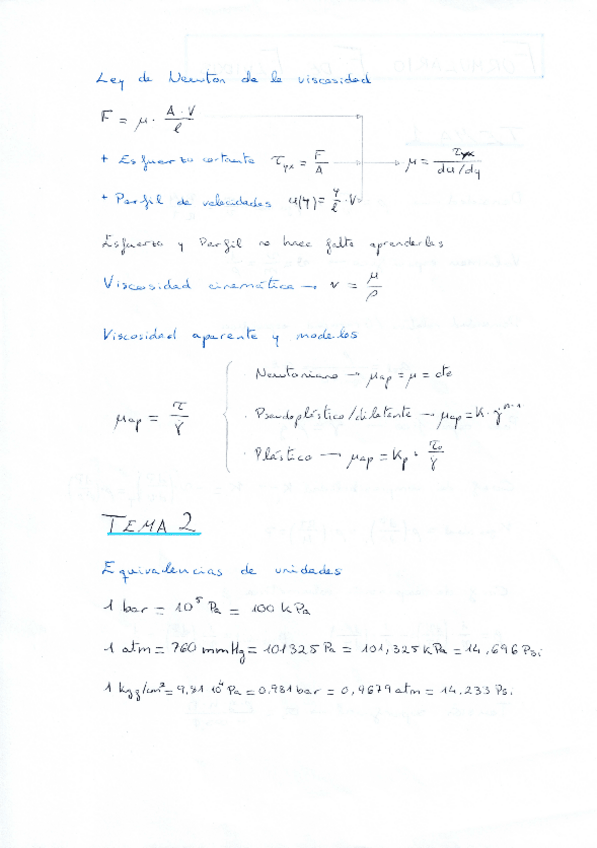 Ley de Newton de la viscosidad
F = μ · A · V / l
+ Esfuerzo cortante τyx = F / A → μ = τyx / du/dy
+ Perfil de velocidades u(y) = y / l · V
Esfuerzo y Perfil no hace falta aprenderlas
Viscosidad cinemática → ν = μ / ρ
Viscosidad aparente y modelos
μap = τ / γ
· Newtoniano → μap = μ = cte
· Pseudoplástico/dilatante → μap = K · γ̇ⁿ⁻¹
· Plástico → μap = Kp + τ₀ / γ
TEMA 2
Equivalencias de unidades
1 bar = 10⁵ Pa = 100 kPa
1 atm = 760 mmHg = 101325 Pa = 101,325 kPa = 14,696 Psi
1 kgf/cm² = 9,81 10⁴ Pa = 0,981 bar = 0,9679 atm = 14,233 Psi